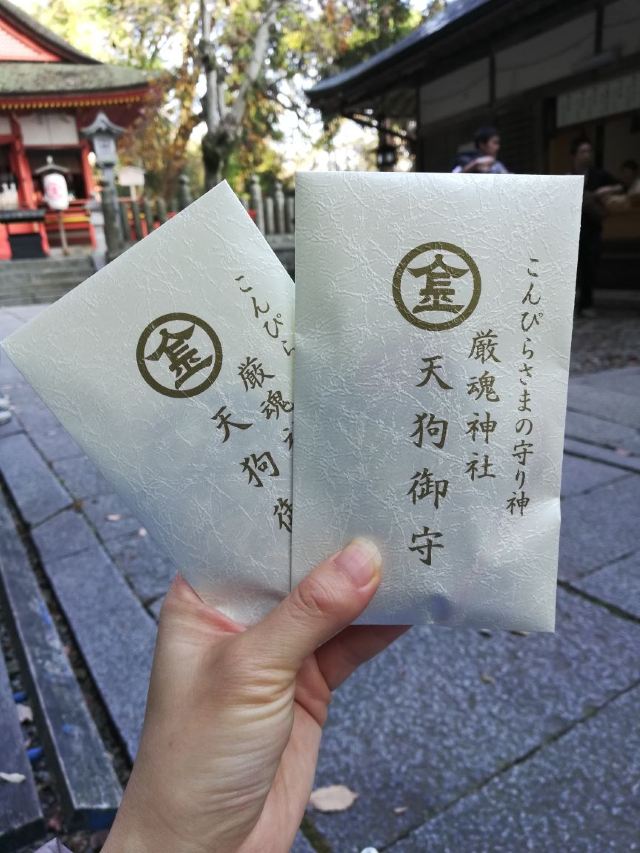 金
こんぴらさまの守り神
厳魂神社
天狗御守
金
こんぴら
厳魂神
天狗御